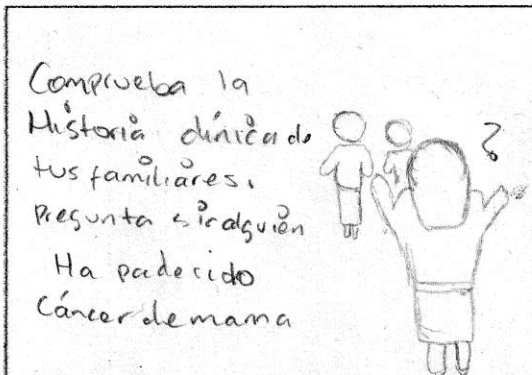 Comprueba la
Historia clínica de
tus familiares.
Pregunta si alguien
Ha padecido
Cáncer de mama
?